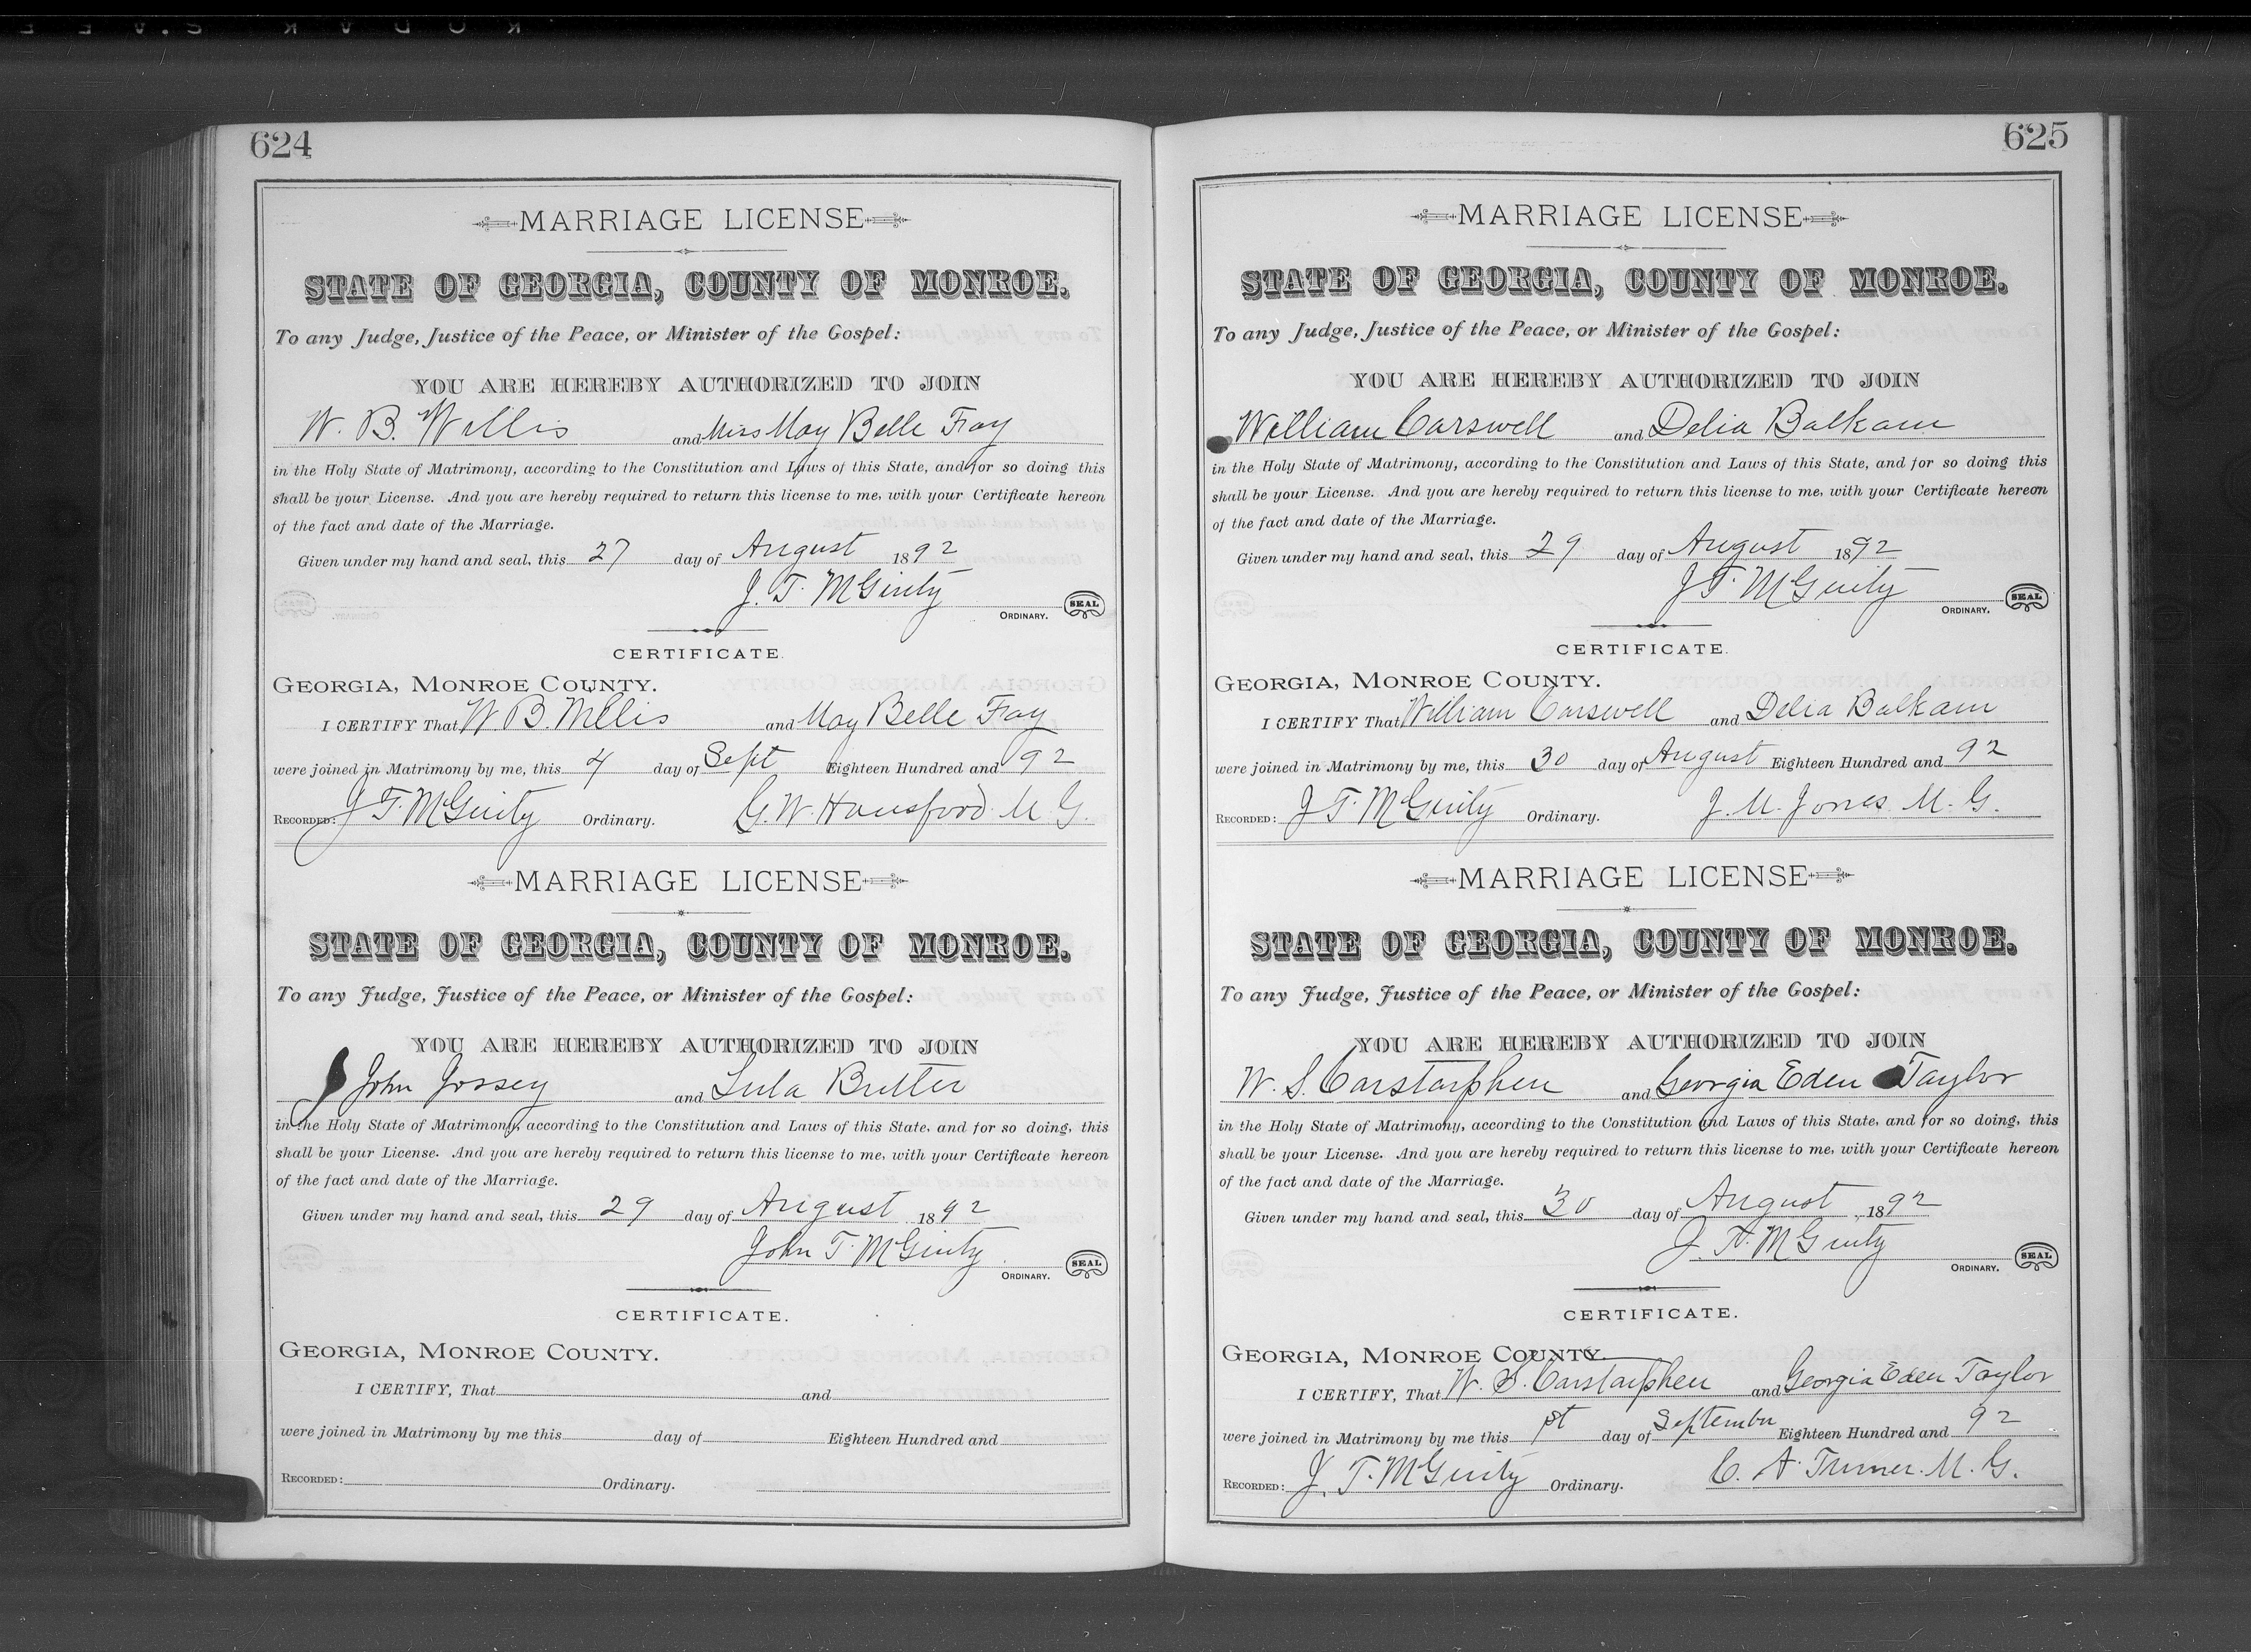 624
MARRIAGE LICENSE
STATE OF GEORGIA, COUNTY OF MONROE.
To any Judge, Justice of the Peace, or Minister of the Gospel:
YOU ARE HEREBY AUTHORIZED TO JOIN
W. B. Willis and Miss May Belle Fray
in the Holy State of Matrimony, according to the Constitution and Laws of this State, and for so doing this
shall be your License. And you are hereby required to return this license to me, with your Certificate hereon
of the fact and date of the Marriage.
Given under my hand and seal, this 27 day of August 1892
J. T. McGinty
ORDINARY. SEAL
CERTIFICATE.
GEORGIA, MONROE COUNTY.
I CERTIFY That W. B. Willis and May Belle Fray
were joined in Matrimony by me, this 4 day of Sept Eighteen Hundred and 92
RECORDED: J T. McGinty Ordinary. G. W. Hansford M. G.
MARRIAGE LICENSE
STATE OF GEORGIA, COUNTY OF MONROE.
To any Judge, Justice of the Peace, or Minister of the Gospel:
YOU ARE HEREBY AUTHORIZED TO JOIN
John Jossey and Lula Butter
in the Holy State of Matrimony, according to the Constitution and Laws of this State, and for so doing, this
shall be your License. And you are hereby required to return this license to me, with your Certificate hereon
of the fact and date of the Marriage.
Given under my hand and seal, this 29 day of August 1892
John T. McGinty
ORDINARY. SEAL
CERTIFICATE.
GEORGIA, MONROE COUNTY.
I CERTIFY, That and
were joined in Matrimony by me this day of Eighteen Hundred and
RECORDED: Ordinary.
625
MARRIAGE LICENSE
STATE OF GEORGIA, COUNTY OF MONROE.
To any Judge, Justice of the Peace, or Minister of the Gospel:
YOU ARE HEREBY AUTHORIZED TO JOIN
William Carswell and Delia Balkam
in the Holy State of Matrimony, according to the Constitution and Laws of this State, and for so doing this
shall be your License. And you are hereby required to return this license to me, with your Certificate hereon
of the fact and date of the Marriage.
Given under my hand and seal, this 29 day of August 1892
J T. McGinty
ORDINARY. SEAL
CERTIFICATE.
GEORGIA, MONROE COUNTY.
I CERTIFY That William Carswell and Delia Balkam
were joined in Matrimony by me, this 30 day of August Eighteen Hundred and 92
RECORDED: J T. McGinty Ordinary. J. M. Jones M. G.
MARRIAGE LICENSE
STATE OF GEORGIA, COUNTY OF MONROE.
To any Judge, Justice of the Peace, or Minister of the Gospel:
YOU ARE HEREBY AUTHORIZED TO JOIN
W. S. Carstarphen and Georgia Eden Taylor
in the Holy State of Matrimony, according to the Constitution and Laws of this State, and for so doing, this
shall be your License. And you are hereby required to return this license to me, with your Certificate hereon
of the fact and date of the Marriage.
Given under my hand and seal, this 30 day of August 1892
J. T. McGinty
ORDINARY. SEAL
CERTIFICATE.
GEORGIA, MONROE COUNTY.
I CERTIFY, That W. S. Carstarphen and Georgia Eden Taylor
were joined in Matrimony by me this 1st day of September Eighteen Hundred and 92
RECORDED: J. T. McGinty Ordinary. C. A. Turner. M. G.